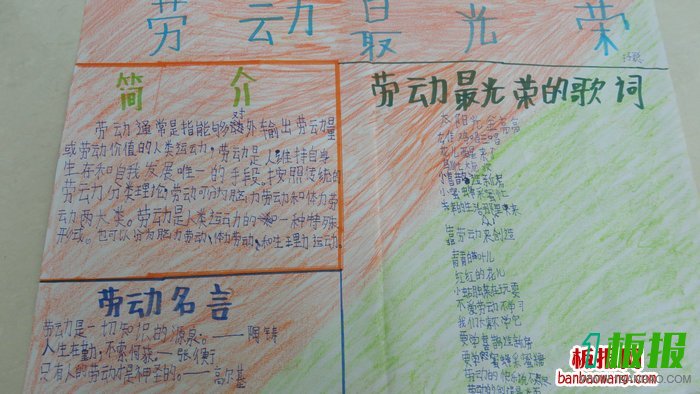 劳动最光荣
简介
劳动通常是指能够对外输出劳动量
或劳动价值的人类运动，劳动是人维持自身
生存和自我发展唯一的手段。按照传统的
劳动力分类理论，劳动可分为脑力劳动和体力劳
动两大类。劳动是人类运动的一种特殊
形式。也可以分为脑力劳动、体力劳动、和生理力运动。
劳动名言
劳动是一切知识的源泉。——陶铸
人生在勤，不索何获。——张衡
只有人的劳动才是神圣的。——高尔基
劳动最光荣的歌词
太阳光金亮亮
雄鸡唱三唱
花儿醒来了
小喜鹊
小蜜蜂采蜜忙
幸福的生活
靠劳动来创造
青青的叶儿
红红的花儿
小蝴蝶贪玩耍
不爱劳动不学习
我们大家不学它
要学喜鹊
要学蜜蜂采蜜糖
劳动的快乐
板报网
板报
banbaowang.com